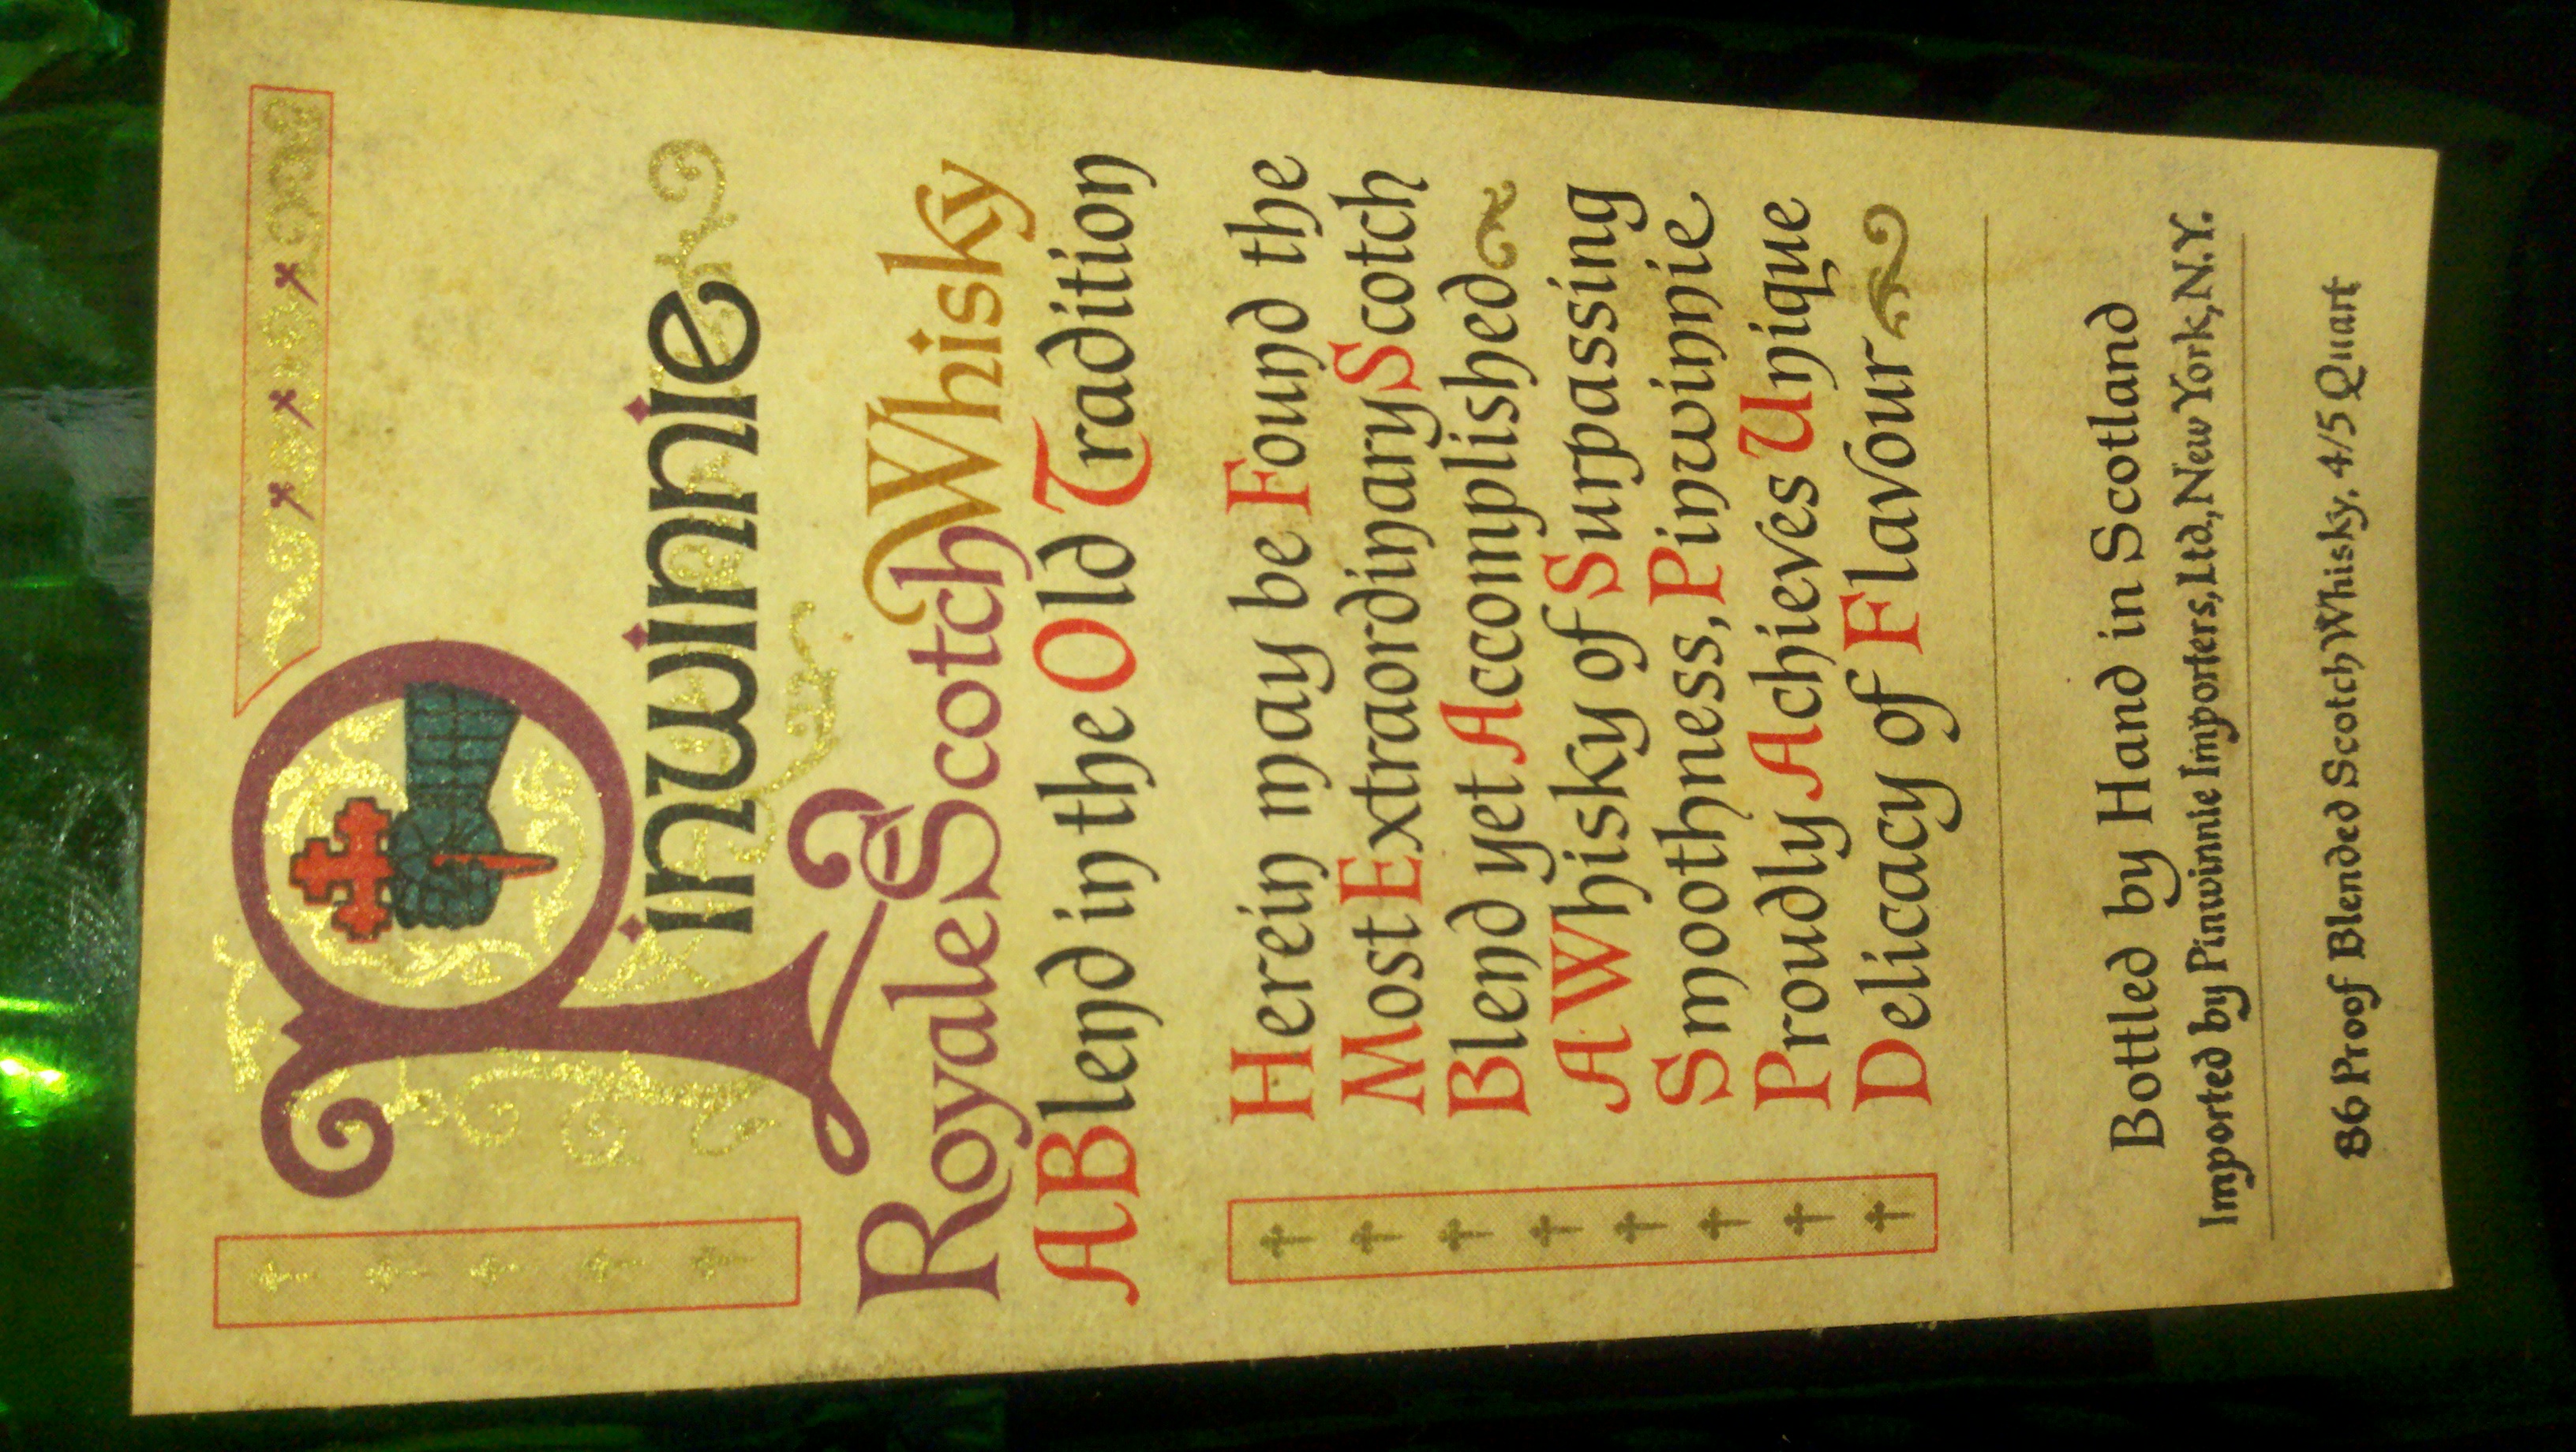 Pinwinnie
Royale Scotch Whisky
A Blend in the Old Tradition
Herein may be Found the
Most Extraordinary Scotch
Blend yet Accomplished
A Whisky of Surpassing
Smoothness, Pinwinnie
Proudly Achieves Unique
Delicacy of Flavour
Bottled by Hand in Scotland
Imported by Pinwinnie Importers, Ltd., New York, N.Y.
86 Proof Blended Scotch Whisky. 4/5 Quart